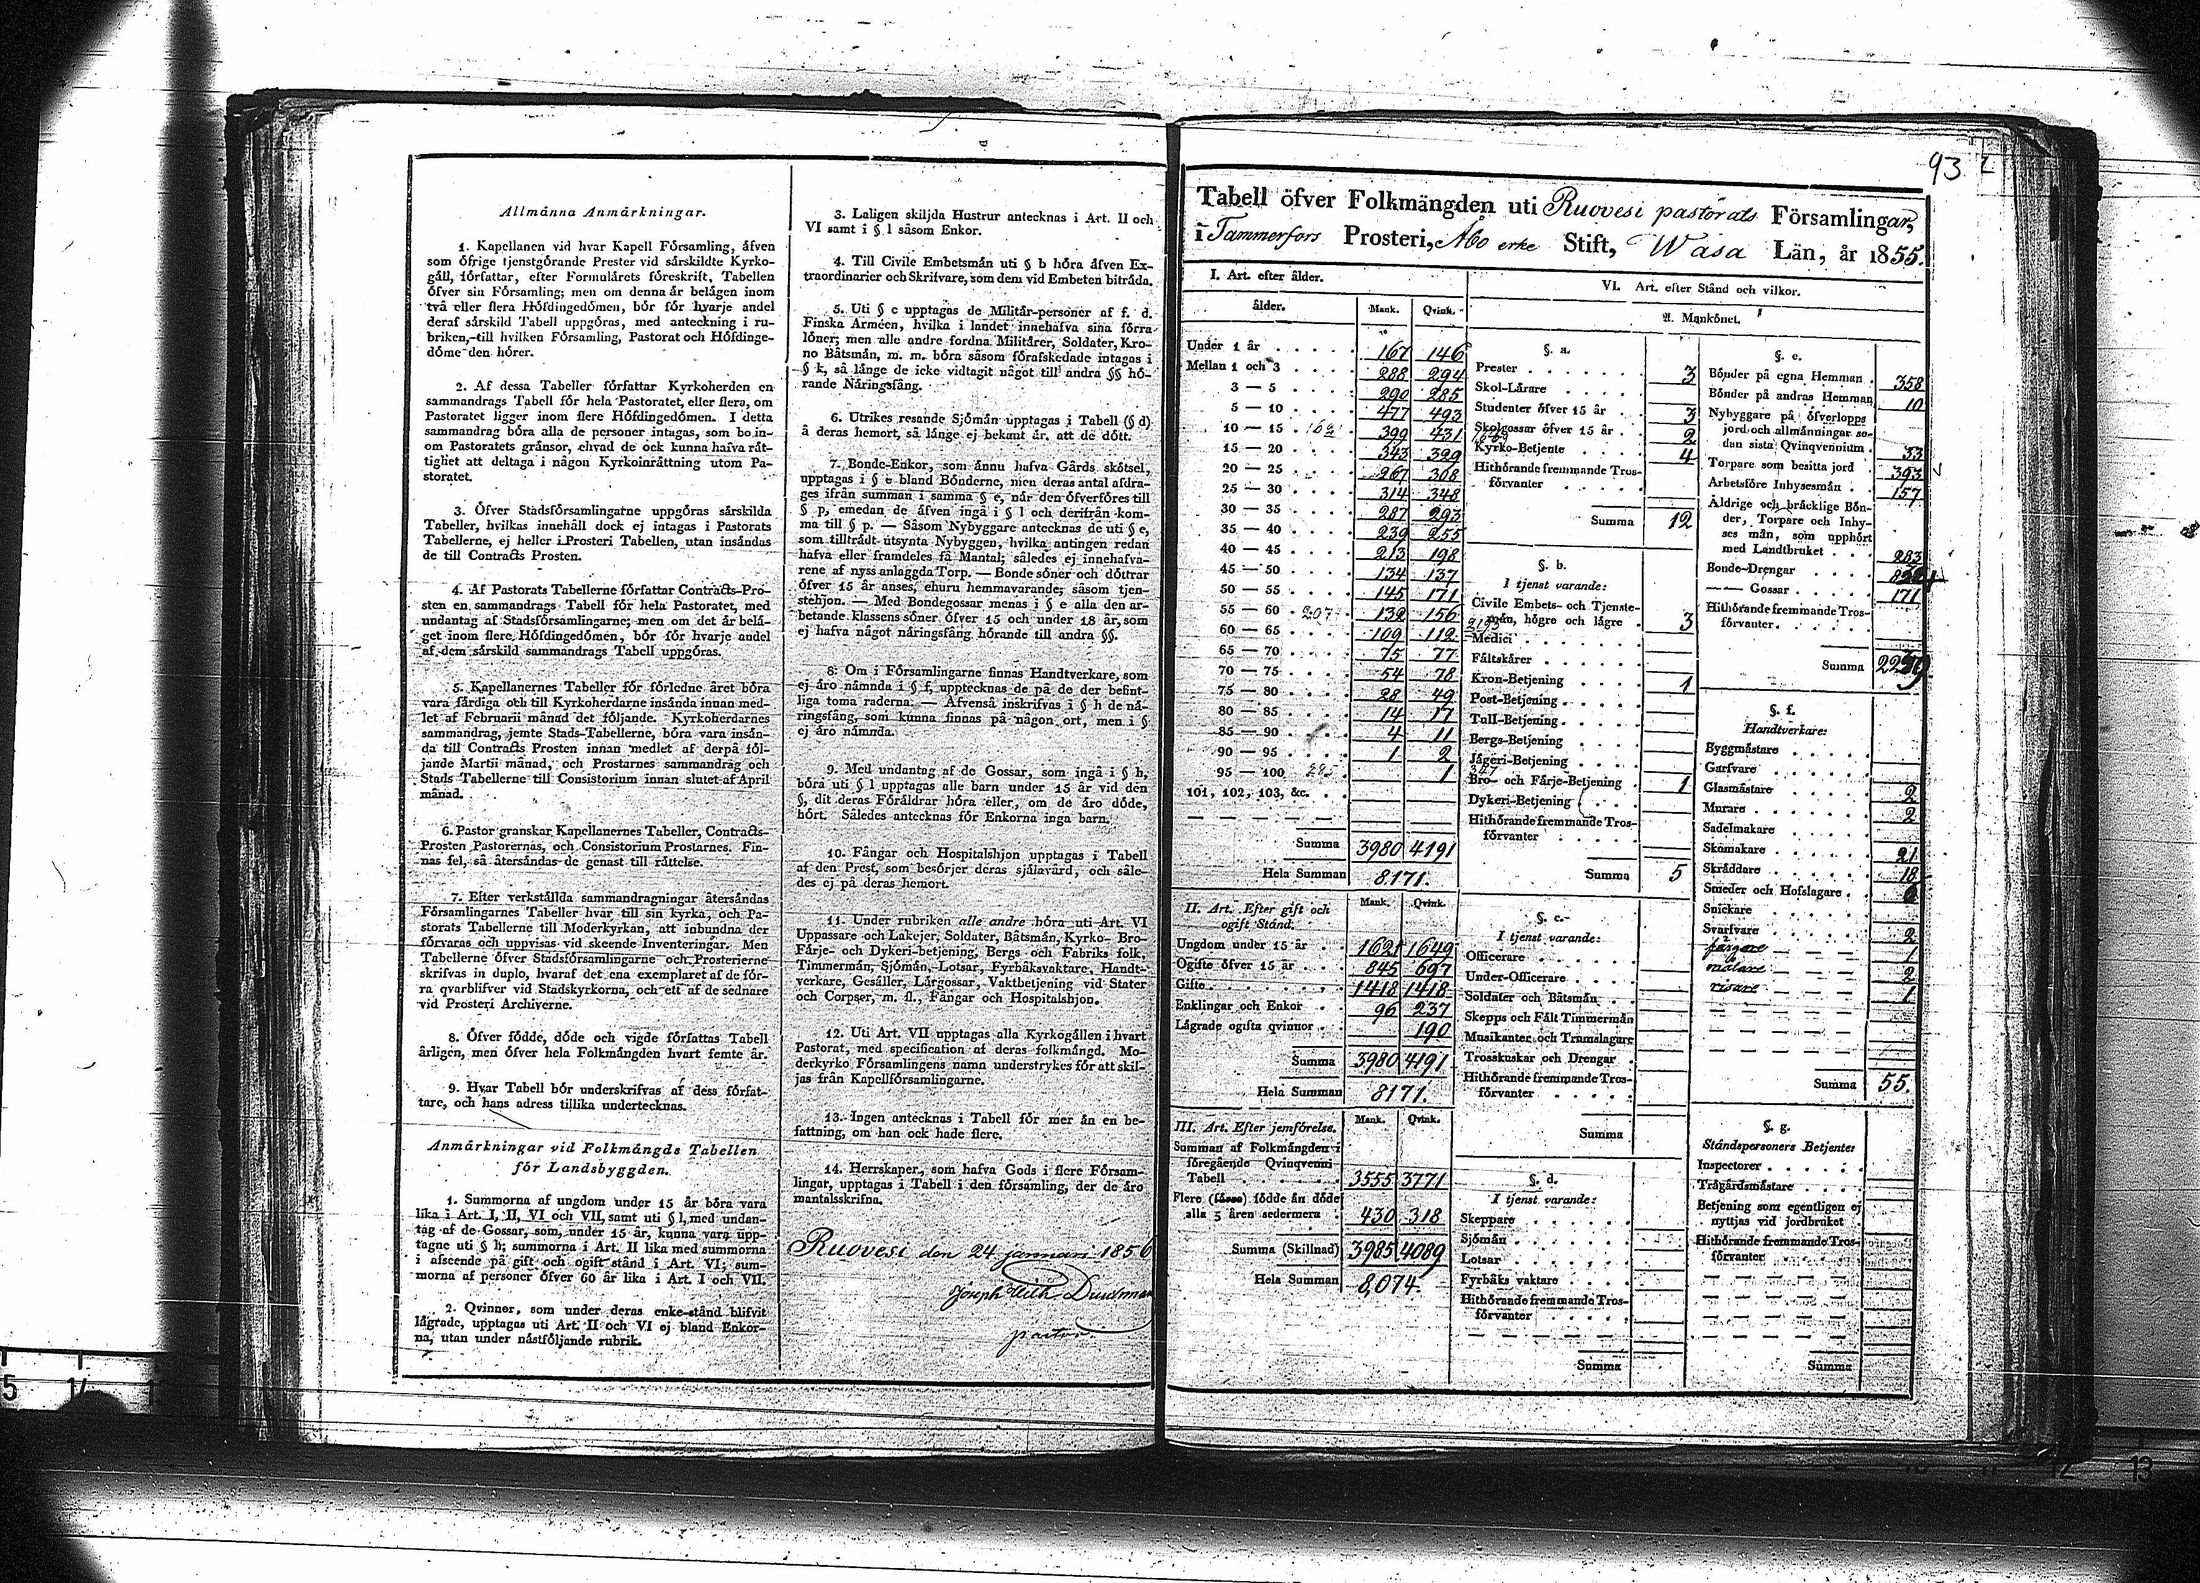 Allmänna Anmärkningar.
1. Kapellanen vid hvar Kapell Församling, äfven
som öfrige tjenstgörande Prester vid särskildte Kyrko-
gäll, författar, efter Formulärets föreskrift, Tabellen
öfver sin Församling; men om denna är belägen inom
två eller flera Höfdingedömen, bör för hvarje andel
deraf särskild Tabell uppgöras, med anteckning i ru-
briken, till hvilken Församling, Pastorat och Höfdinge-
döme den hörer.
2. Af dessa Tabeller författar Kyrkoherden en
sammandrags Tabell för hela Pastoratet, eller flera, om
Pastoratet ligger inom flere Höfdingedömen. I detta
sammandrag böra alla de personer intagas, som bo in-
om Pastoratets gränsor, ehvad de ock kunna hafva rät-
tighet att deltaga i någon Kyrkoinrättning utom Pa-
storatet.
3. Öfver Stadsförsamlingarne uppgöras särskilda
Tabeller, hvilkas innehåll dock ej intages i Pastorats
Tabellerne, ej heller i Prosteri Tabellen, utan insändas
de till Contracts Prosten.
4. Af Pastorats Tabellerne författar Contracts-Pro-
sten en sammandrags Tabell för hela Pastoratet, med
undantag af Stadsförsamlingarne; men om det är belä-
get inom flere Höfdingedömen, bör för hvarje andel
af dem särskild sammandrags Tabell uppgöras.
5. Kapellanernes Tabeller för förledne året böra
vara färdiga och till Kyrkoherdarne insända innan med-
let af Februarii månad det följande. Kyrkoherdarnes
sammandrag, jemte Stads-Tabellerne, böra vara insän-
da till Contracts Prosten innan medlet af derpå föl-
jande Martii månad, och Prostarnes sammandrag och
Stads Tabellerne till Consistorium innan slutet af April
månad.
6. Pastor granskar Kapellanernes Tabeller, Contracts-
Prosten Pastorernas, och Consistorium Prostarnes. Fin-
nas fel, så återsändas de genast till rättelse.
7. Efter verkställda sammandragningar återsändas
Församlingarnes Tabeller hvar till sin kyrka, och Pa-
storats Tabellerne till Moderkyrkan, att inbundna der
förvaras och uppvisas vid skeende Inventeringar. Men
Tabellerne öfver Stadsförsamlingarne och Prosterierne
skrifvas in duplo, hvaraf det ena exemplaret af de för-
ra qvarblifver vid Stadskyrkorna, och ett af de sednare
vid Prosteri Archiverne.
8. Öfver födde, döde och vigde författas Tabell
årligen, men öfver hela Folkmängden hvart femte år.
9. Hvar Tabell bör underskrifvas af dess förfat-
tare, och hans adress tillika undertecknas.
Anmärkningar vid Folkmängds Tabellen
för Landsbyggden.
1. Summorna af ungdom under 15 år böra vara
lika i Art. I, II, VI och VII, samt uti § l, med undan-
tag af de Gossar, som, under 15 år, kunna vara upp-
tagne uti § h; summorna i Art. II lika med summorna
i afseende på gift och ogift stånd i Art. VI; sum-
morna af personer öfver 60 år lika i Art. I och VII.
2. Qvinnor, som under deras enke-stånd blifvit
lägrade, upptagas uti Art. II och VI ej bland Enkor-
na, utan under nästföljande rubrik.
3. Laligen skiljda Hustrur antecknas i Art. II och
VI samt i § l såsom Enkor.
4. Till Civile Embetsmän uti § b höra äfven Ex-
traordinarier och Skrifvare, som dem vid Embeten biträda.
5. Uti § c upptagas de Militär-personer af f. d.
Finska Arméen, hvilka i landet innehafva sina förra
löner; men alle andre fordna Militärer, Soldater, Kro-
no Båtsmän, m. m. böra såsom förafskedade intagas i
§ k, så länge de icke vidtagit något till andra §§ hö-
rande Näringsfång.
6. Utrikes resande Sjömän upptagas i Tabell (§ d)
å deras hemort, så länge ej bekant är, att de dött.
7. Bonde-Enkor, som ännu hafva Gårds skötsel,
upptagas i § e bland Bönderne, men deras antal afdra-
ges ifrån summan i samma § e, när den öfverföres till
§ p, emedan de äfven ingå i § l och derifrån kom-
ma till § p. — Såsom Nybyggare antecknas de uti § e,
som tillträdt utsynta Nybyggen, hvilka antingen redan
hafva eller framdeles få Mantal; således ej innehafva-
rene af nyss anlaggda Torp. — Bonde söner och döttrar
öfver 15 år anses, ehuru hemmavarande, såsom tjen-
stehjon. — Med Bondegossar menas i § e alla den ar-
betande klassens söner öfver 15 och under 18 år, som
ej hafva något näringsfång hörande till andra §§.
8. Om i Församlingarne finnas Handtverkare, som
ej äro nämnda i § f, upptecknas de på de der befint-
liga toma raderna. — Äfvenså inskrifvas i § h de nä-
ringsfång, som kunna finnas på någon ort, men i §
ej äro nämnda.
9. Med undantag af de Gossar, som ingå i § h,
böra uti § l upptagas alle barn under 15 år vid den
§, dit deras Föräldrar höra eller, om de äro döde,
hört. Således antecknas för Enkorna inga barn.
10. Fångar och Hospitalshjon upptagas i Tabell
af den Prest, som besörjer deras själavård, och såle-
des ej på deras hemort.
11. Under rubriken alle andre höra uti Art. VI
Uppassare och Lakejer, Soldater, Båtsmän, Kyrko- Bro-
Färje- och Dykeri-betjening, Bergs och Fabriks folk,
Timmermän, Sjömän, Lotsar, Fyrbåksvaktare, Handt-
verkare, Gesäller, Lärgossar, Vaktbetjening vid Stater
och Corpser, m. fl., Fångar och Hospitalshjon.
12. Uti Art. VII upptagas alla Kyrkogällen i hvart
Pastorat, med specification af deras folkmängd. Mo-
derkyrko Församlingens namn understrykes för att skil-
jas från Kapellförsamlingarne.
13. Ingen antecknas i Tabell för mer än en be-
fattning, om han ock hade flere.
14. Herrskaper, som hafva Gods i flere Försam-
lingar, upptagas i Tabell i den församling, der de äro
mantalsskrifna.
Ruovesi den 24 januari 1856
Joseph Wilh
pastor
93
Tabell öfver Folkmängden uti Ruovesi pastorats Församlingar,
i Tammerfors Prosteri, Åbo erke Stift, Wasa Län, år 1855.
I. Art. efter ålder.
ålder. Mank. Qvink.
Under 1 år 167 146
Mellan 1 och 3 288 294
3 — 5 290 285
5 — 10 477 493
10 — 15 399 431
15 — 20 343 329
20 — 25 267 308
25 — 30 314 348
30 — 35 287 293
35 — 40 239 255
40 — 45 213 198
45 — 50 134 137
50 — 55 145 171
55 — 60 207 132 156
60 — 65 109 112
65 — 70 75 77
70 — 75 54 78
75 — 80 28 49
80 — 85 14 17
85 — 90 4 11
90 — 95 1 2
95 — 100 285 1 347
101, 102, 103, &c.
Summa 3980 4191
Hela Summan 8171.
II. Art. Efter gift och
ogift Stånd. Mank. Qvink.
Ungdom under 15 år 1621 1649
Ogifte öfver 15 år 845 697
Gifte 1418 1418
Enklingar och Enkor 96 237
Lägrade ogifta qvinnor 190
Summa 3980 4191
Hela Summan 8171.
III. Art. Efter jemförelse. Mank. Qvink.
Summan af Folkmängden i
föregående Qvinqvenni-
Tabell 3555 3771
Flere (färre) födde än döde
alla 5 åren sedermera 430 318
Summa (Skillnad) 3985 4089
Hela Summan 8,074.
VI. Art. efter Stånd och vilkor.
A. Mankönet.
§. a.
Prester 3
Skol-Lärare
Studenter öfver 15 år 3
Skolgossar öfver 15 år 2
Kyrko-Betjente 4
Hithörande fremmande Tros-
förvanter
Summa 12
§. b.
I tjenst varande:
Civile Embets- och Tjenste-
män, högre och lägre 3
Medici
Fältskärer
Kron-Betjening 1
Post-Betjening
Tull-Betjening
Bergs-Betjening
Jägeri-Betjening
Bro- och Färje-Betjening 1
Dykeri-Betjening
Hithörande fremmande Tros-
förvanter
Summa 5
§. c.
I tjenst varande:
Officerare
Under-Officerare
Soldater och Båtsmän
Skepps och Fält Timmermän
Musikanter och Trumslagare
Trosskuskar och Drengar
Hithörande fremmande Tros-
förvanter
Summa
§. d.
I tjenst varande:
Skeppare
Sjömän
Lotsar
Fyrbåks vaktare
Hithörande fremmande Tros-
förvanter
Summa
§. e.
Bönder på egna Hemman 358
Bönder på andras Hemman 10
Nybyggare på öfverlopps
jord och allmänningar se-
dan sista Qvinqvennium 33
Torpare som besitta jord 393
Arbetsföre Inhysesmän 157
Åldrige och bräcklige Bön-
der, Torpare och Inhy-
ses män, som upphört
med Landtbruket 283
Bonde-Drengar
—— Gossar 171
Hithörande fremmande Tros-
förvanter
Summa
§. f.
Handtverkare:
Byggmästare
Garfvare
Glasmästare 2
Murare 2
Sadelmakare
Skomakare 21
Skräddare 18
Smeder och Hofslagare 6
Snickare
Svarfvare 2
färgare 1
målare 2
risare 1
Summa 55.
§. g.
Ståndspersoners Betjente:
Inspectorer
Trägårdsmästare
Betjening som egentligen ej
nyttjas vid jordbruket
Hithörande fremmande Tros-
förvanter
Summa